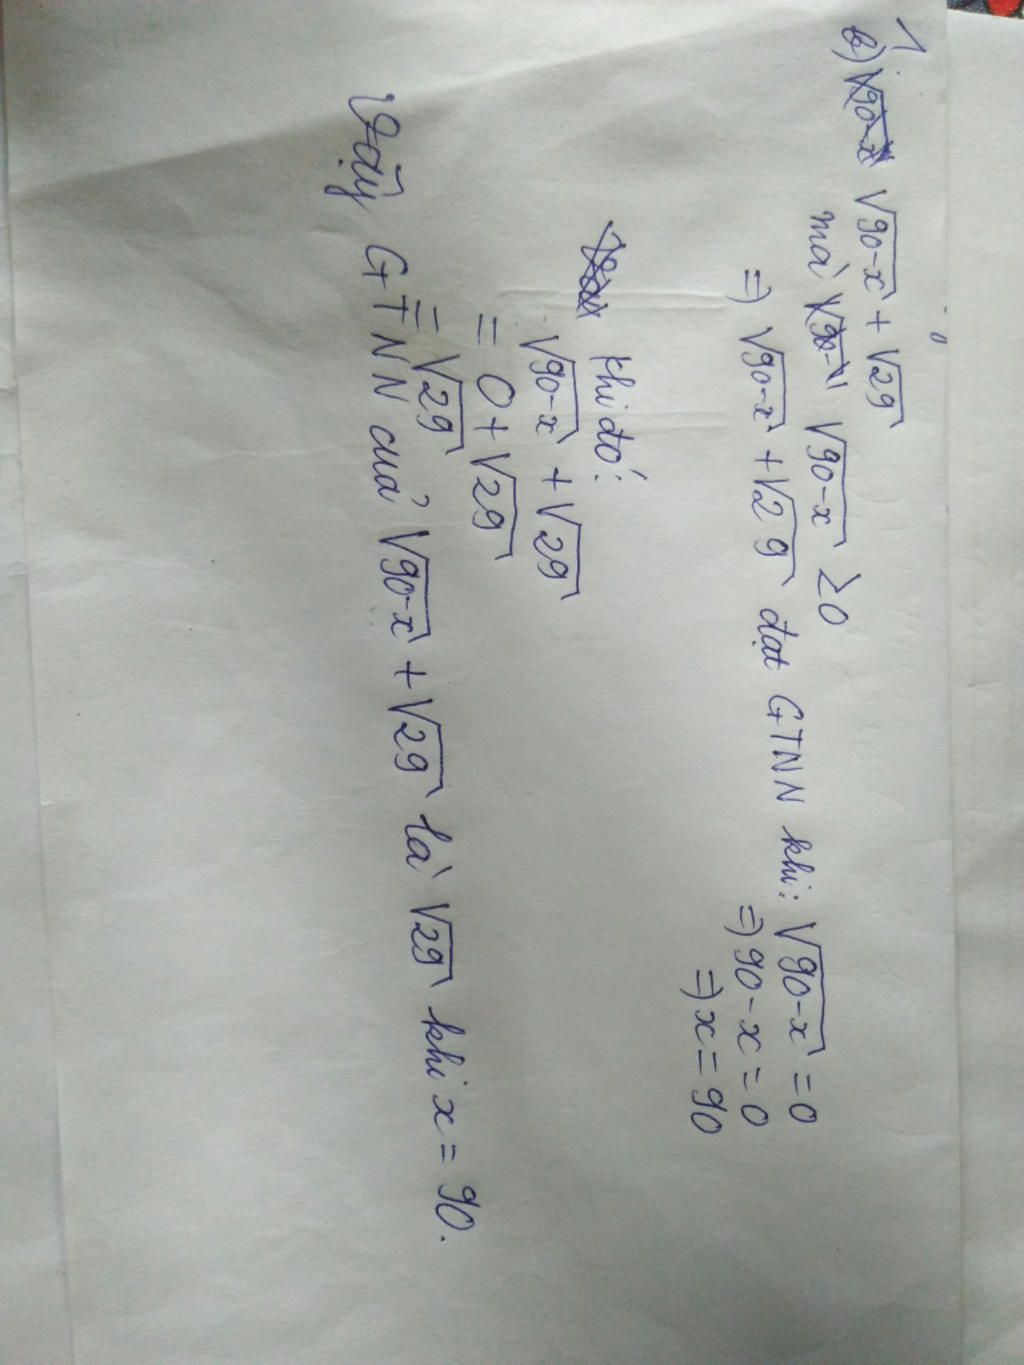 1
b) √90-x + √29
mà √90-x ≥0
=) √90-x + √29 đạt GTNN khi: √90-x = 0
=) 90-x=0
=) x=90
khi đó:
√90-x + √29
= 0+√29
= √29
Vậy GTNN của √90-x + √29 là √29 khi x = 90.